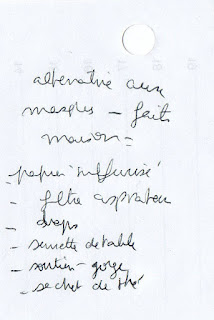 alternative aux
masques - faits
maison =
- papier sulfurisé
- filtre aspirateur
- draps
- serviette de table
- soutien-gorge
- sachet de thé